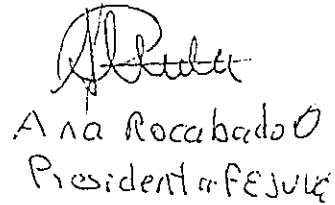 Ana Rocabado O
Presidenta FEJUVE